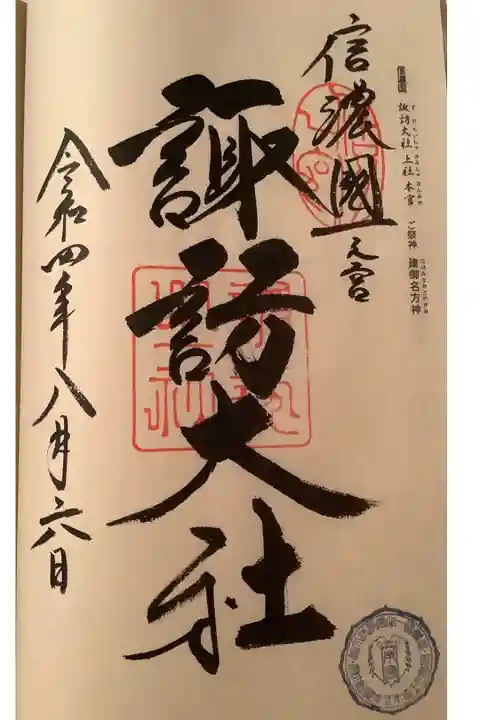 信濃國 諏訪大社 上社 本宮 ご祭神 建御名方神
信濃國一之宮
諏訪大社
令和四年八月六日